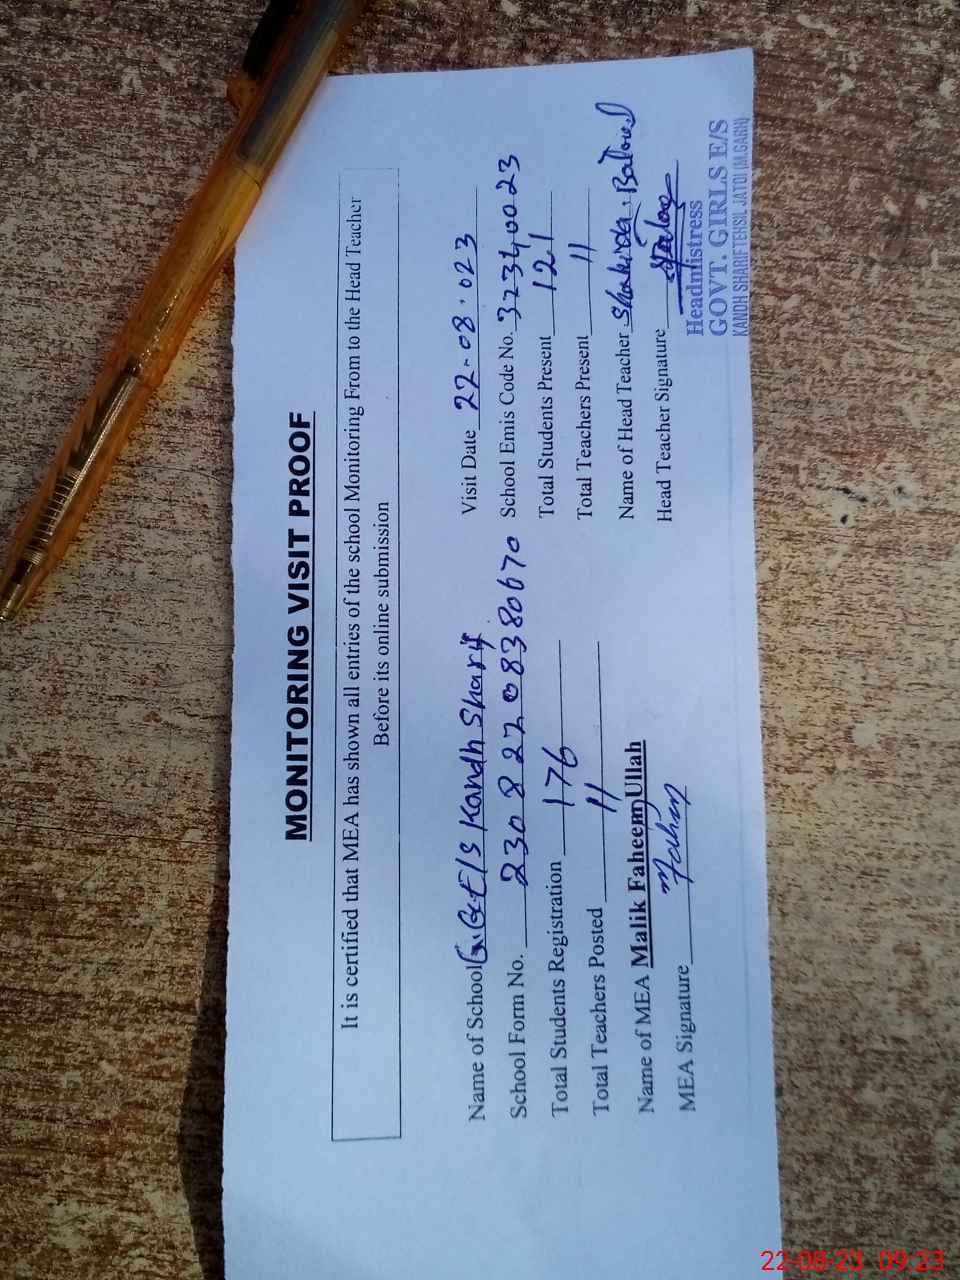 MONITORING VISIT PROOF
It is certified that MEA has shown all entries of the school Monitoring From to the Head Teacher
Before its online submission
Name of School G.G.E/S Kandh Sharif Visit Date 22-08-023
School Form No. 23082208380670 School Emis Code No. 32340023
Total Students Registration 176 Total Students Present 121
Total Teachers Posted 11 Total Teachers Present 11
Name of MEA Malik Faheem Ullah Name of Head Teacher Shahida Batool
MEA Signature Fahim Head Teacher Signature
Headmistress
GOVT. GIRLS E/S
KANDH SHARIF TEHSIL JATOI (M.GARH)
22-08-23 09:23